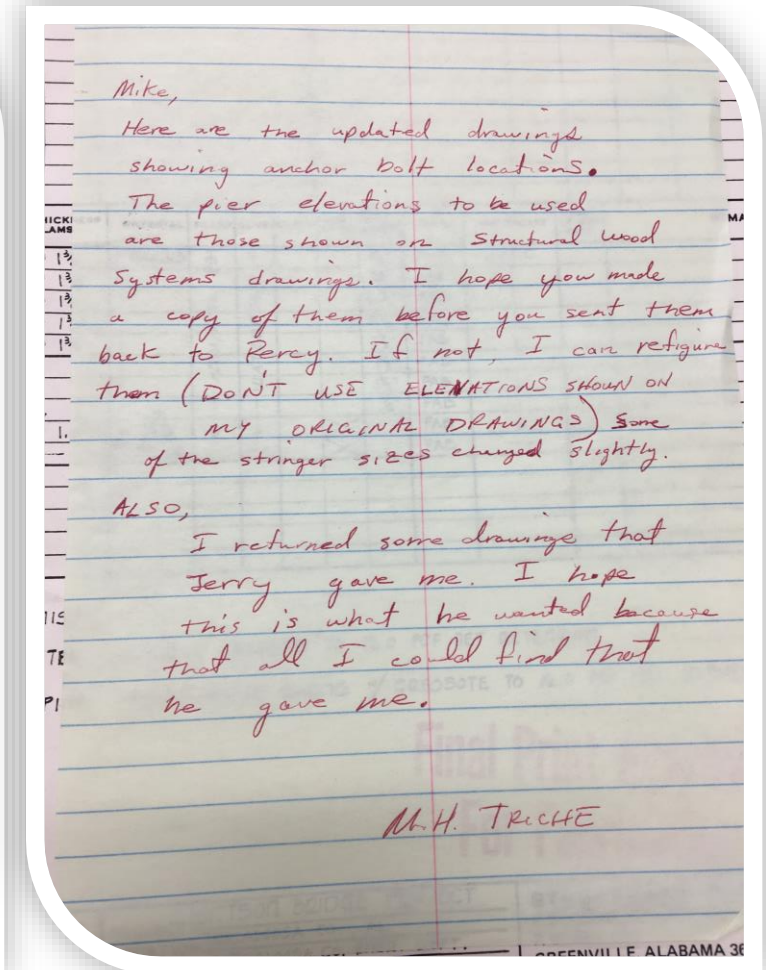 Mike,
Here are the updated drawings
showing anchor bolt locations.
The pier elevations to be used
are those shown on Structural Wood
Systems drawings. I hope you made
a copy of them before you sent them
back to Percy. If not, I can refigure
them (DON'T USE ELEVATIONS SHOWN ON
MY ORIGINAL DRAWINGS) Some
of the stringer sizes changed slightly.
ALSO,
I returned some drawings that
Jerry gave me. I hope
this is what he wanted because
that all I could find that
he gave me.
M.H. TRICHE
Final Print
For
GREENVILLE ALABAMA 36